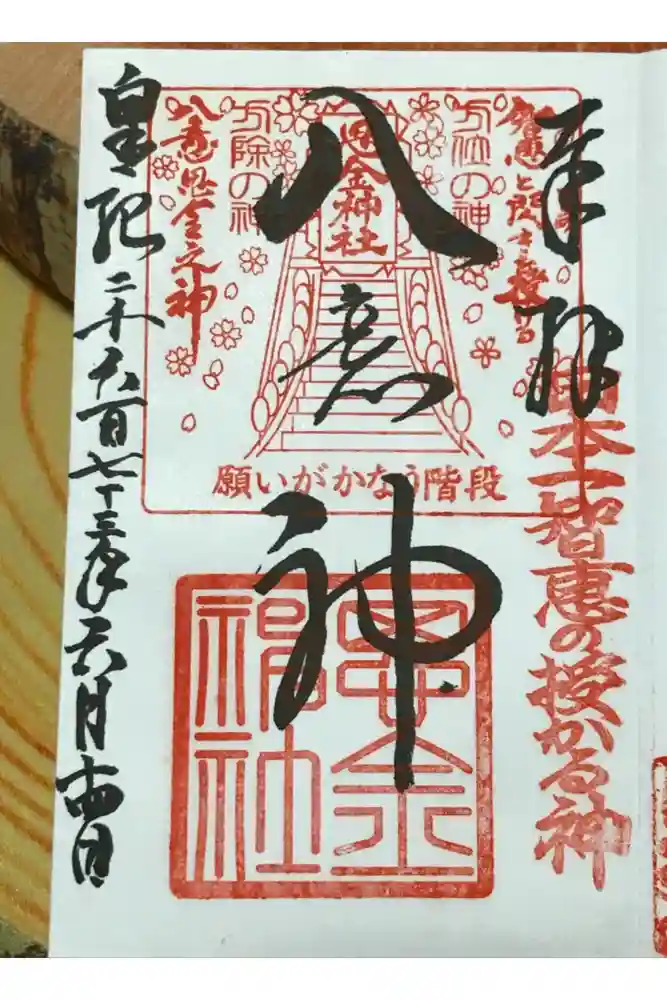 奉拝
日本一智恵の授かる神
方位の神
思金神社
方除の神
八意思金之神
願いがかなう階段
八意神
思金神社
皇紀二千六百七十三年六月十四日